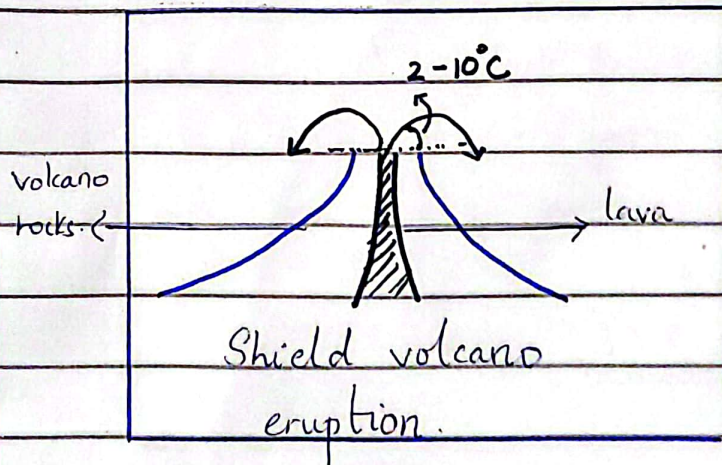 2-10°C
volcano
rocks.
lava
Shield volcano
eruption.